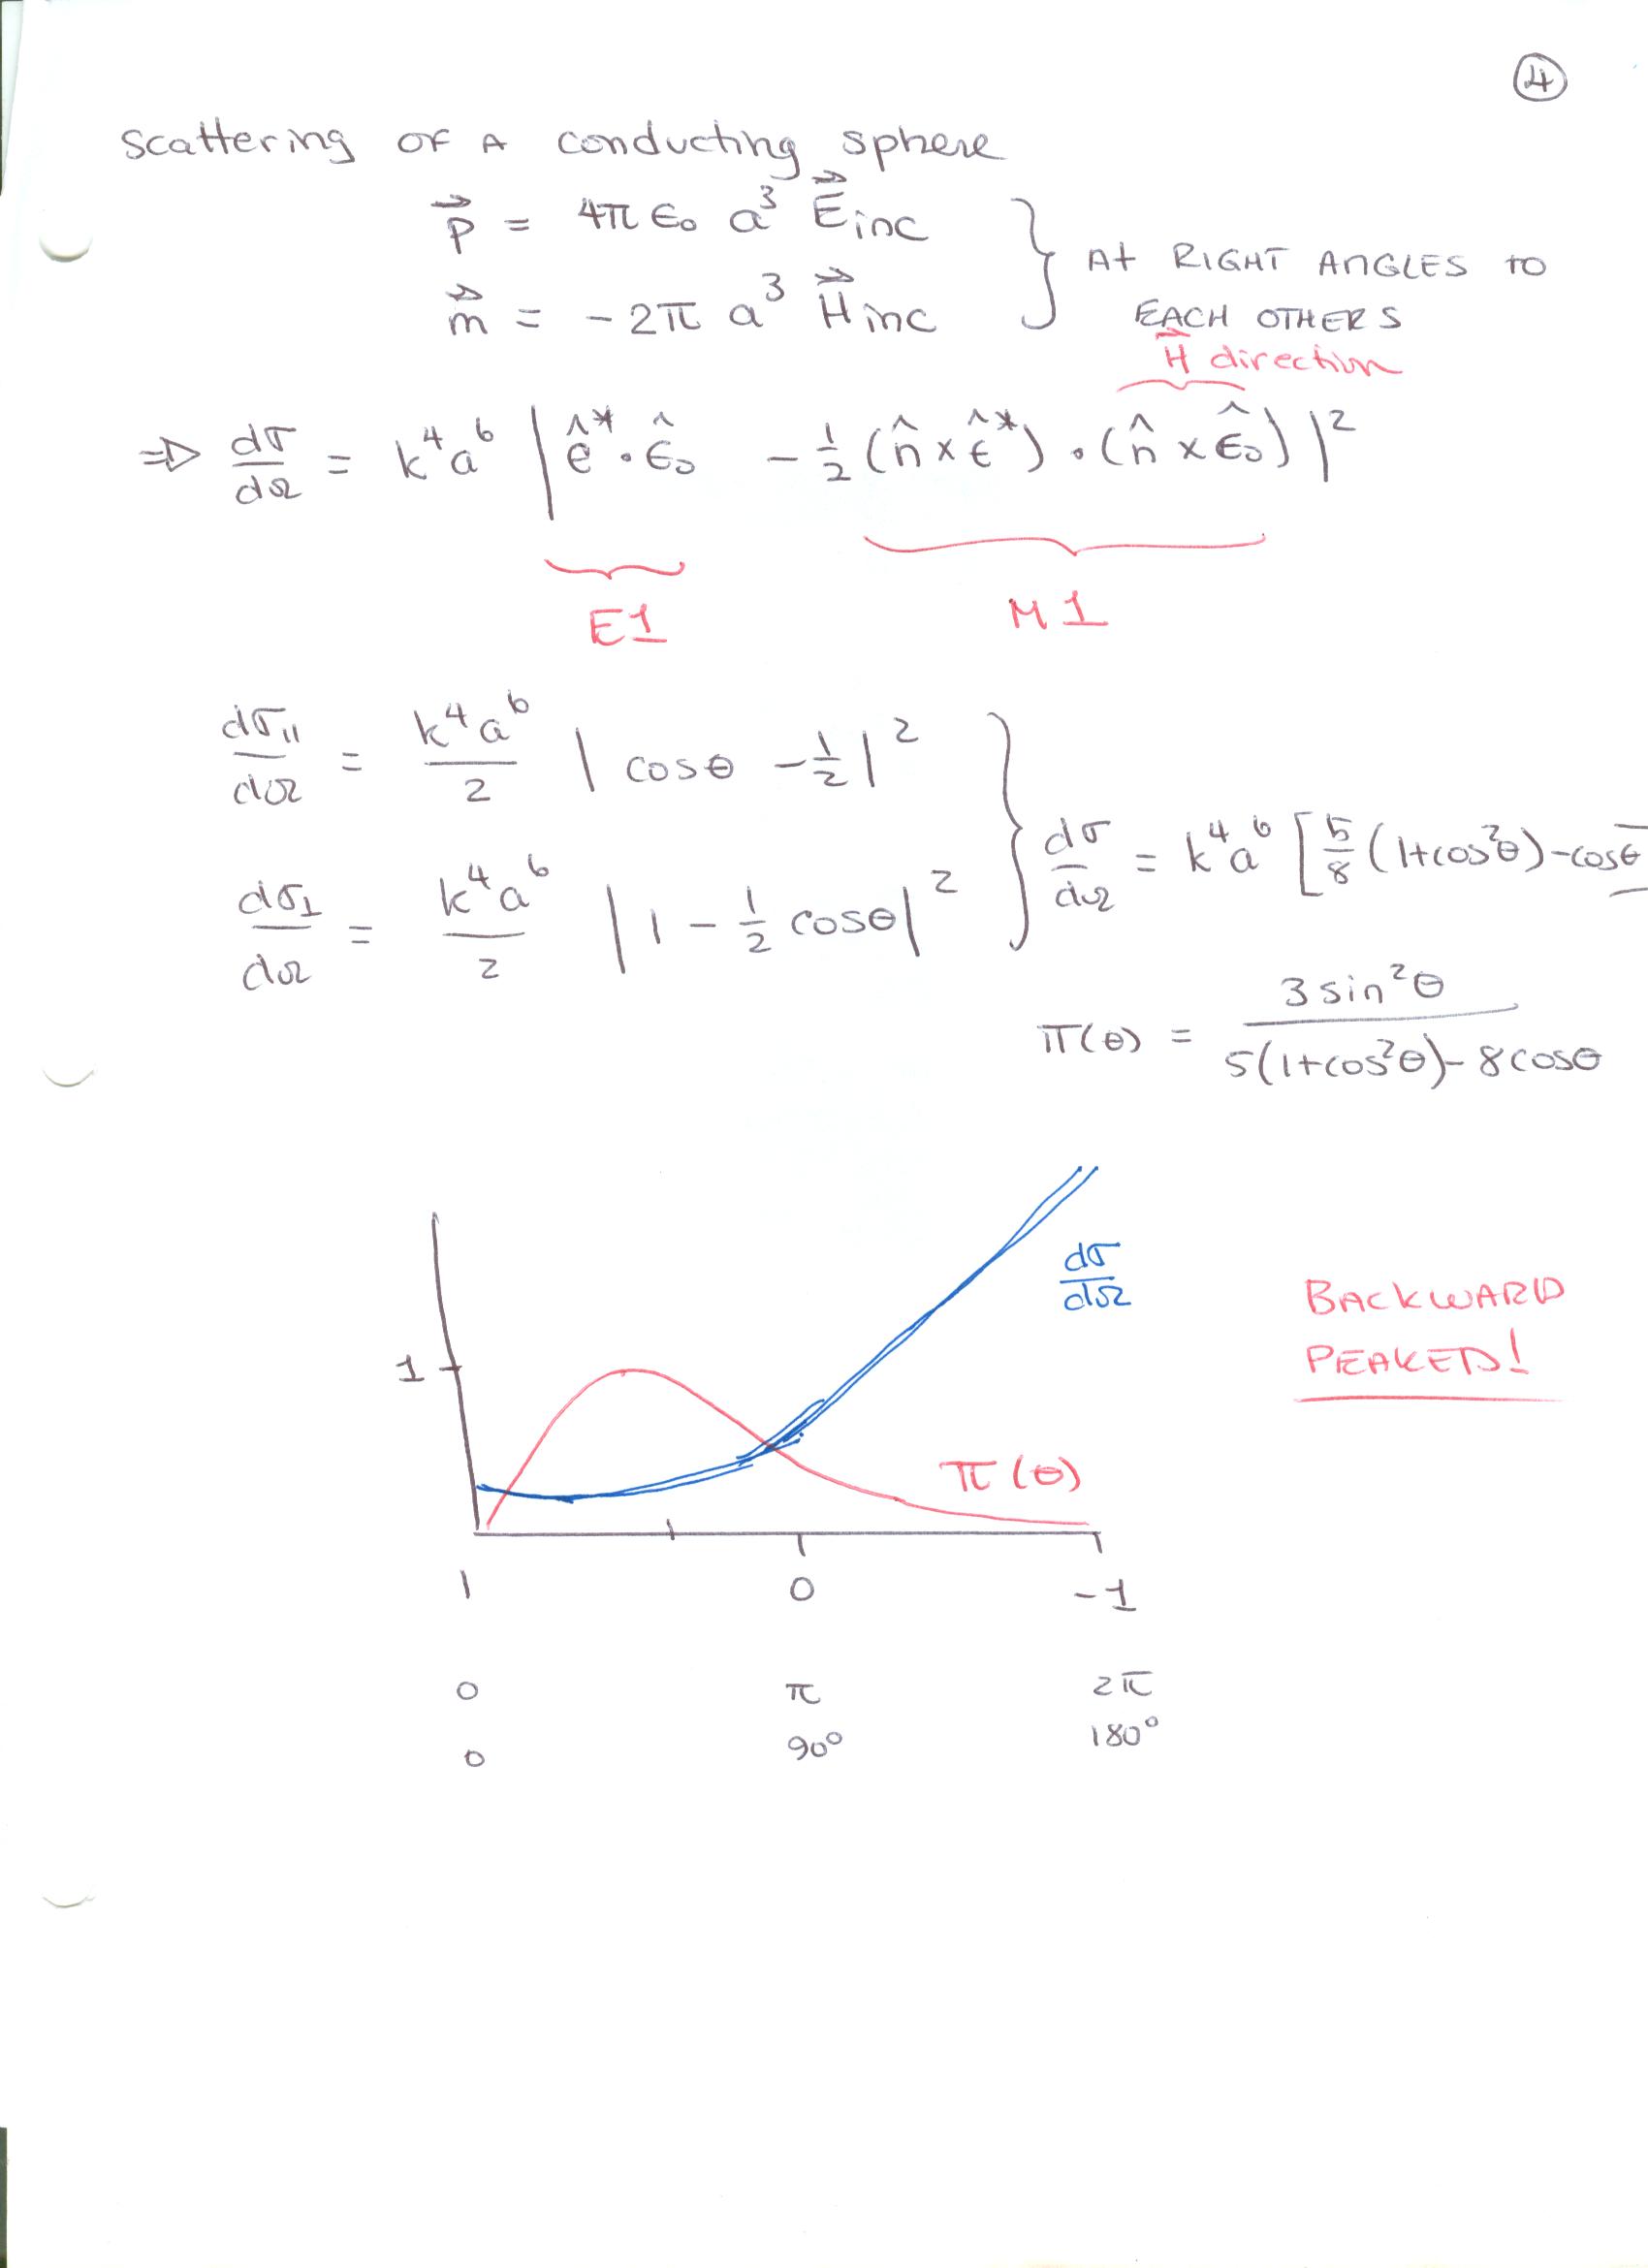 ④
Scattering OF A conducting sphere
p⃗ = 4π ϵ₀ a³ E⃗inc
m⃗ = - 2π a³ H⃗inc
} At RIGHT ANGLES to
EACH OTHERS
H⃗ direction
⇒ dσ/dΩ = k⁴a⁶ | ê* · ϵ̂₀ - ½ (n̂ × ϵ̂*) · (n̂ × ϵ̂₀) |²
E1
M1
dσ∥/dΩ = k⁴a⁶/2 | cosθ - ½ |²
dσ⊥/dΩ = k⁴a⁶/2 | 1 - ½ cosθ |²
} dσ/dΩ = k⁴a⁶ [ 5/8 (1+cos²θ) - cosθ
π(θ) = 3 sin²θ / 5(1+cos²θ) - 8 cosθ
dσ/dΩ
BACKWARD
PEAKED!
1
π(θ)
1 0 -1
0 π 2π
0 90° 180°